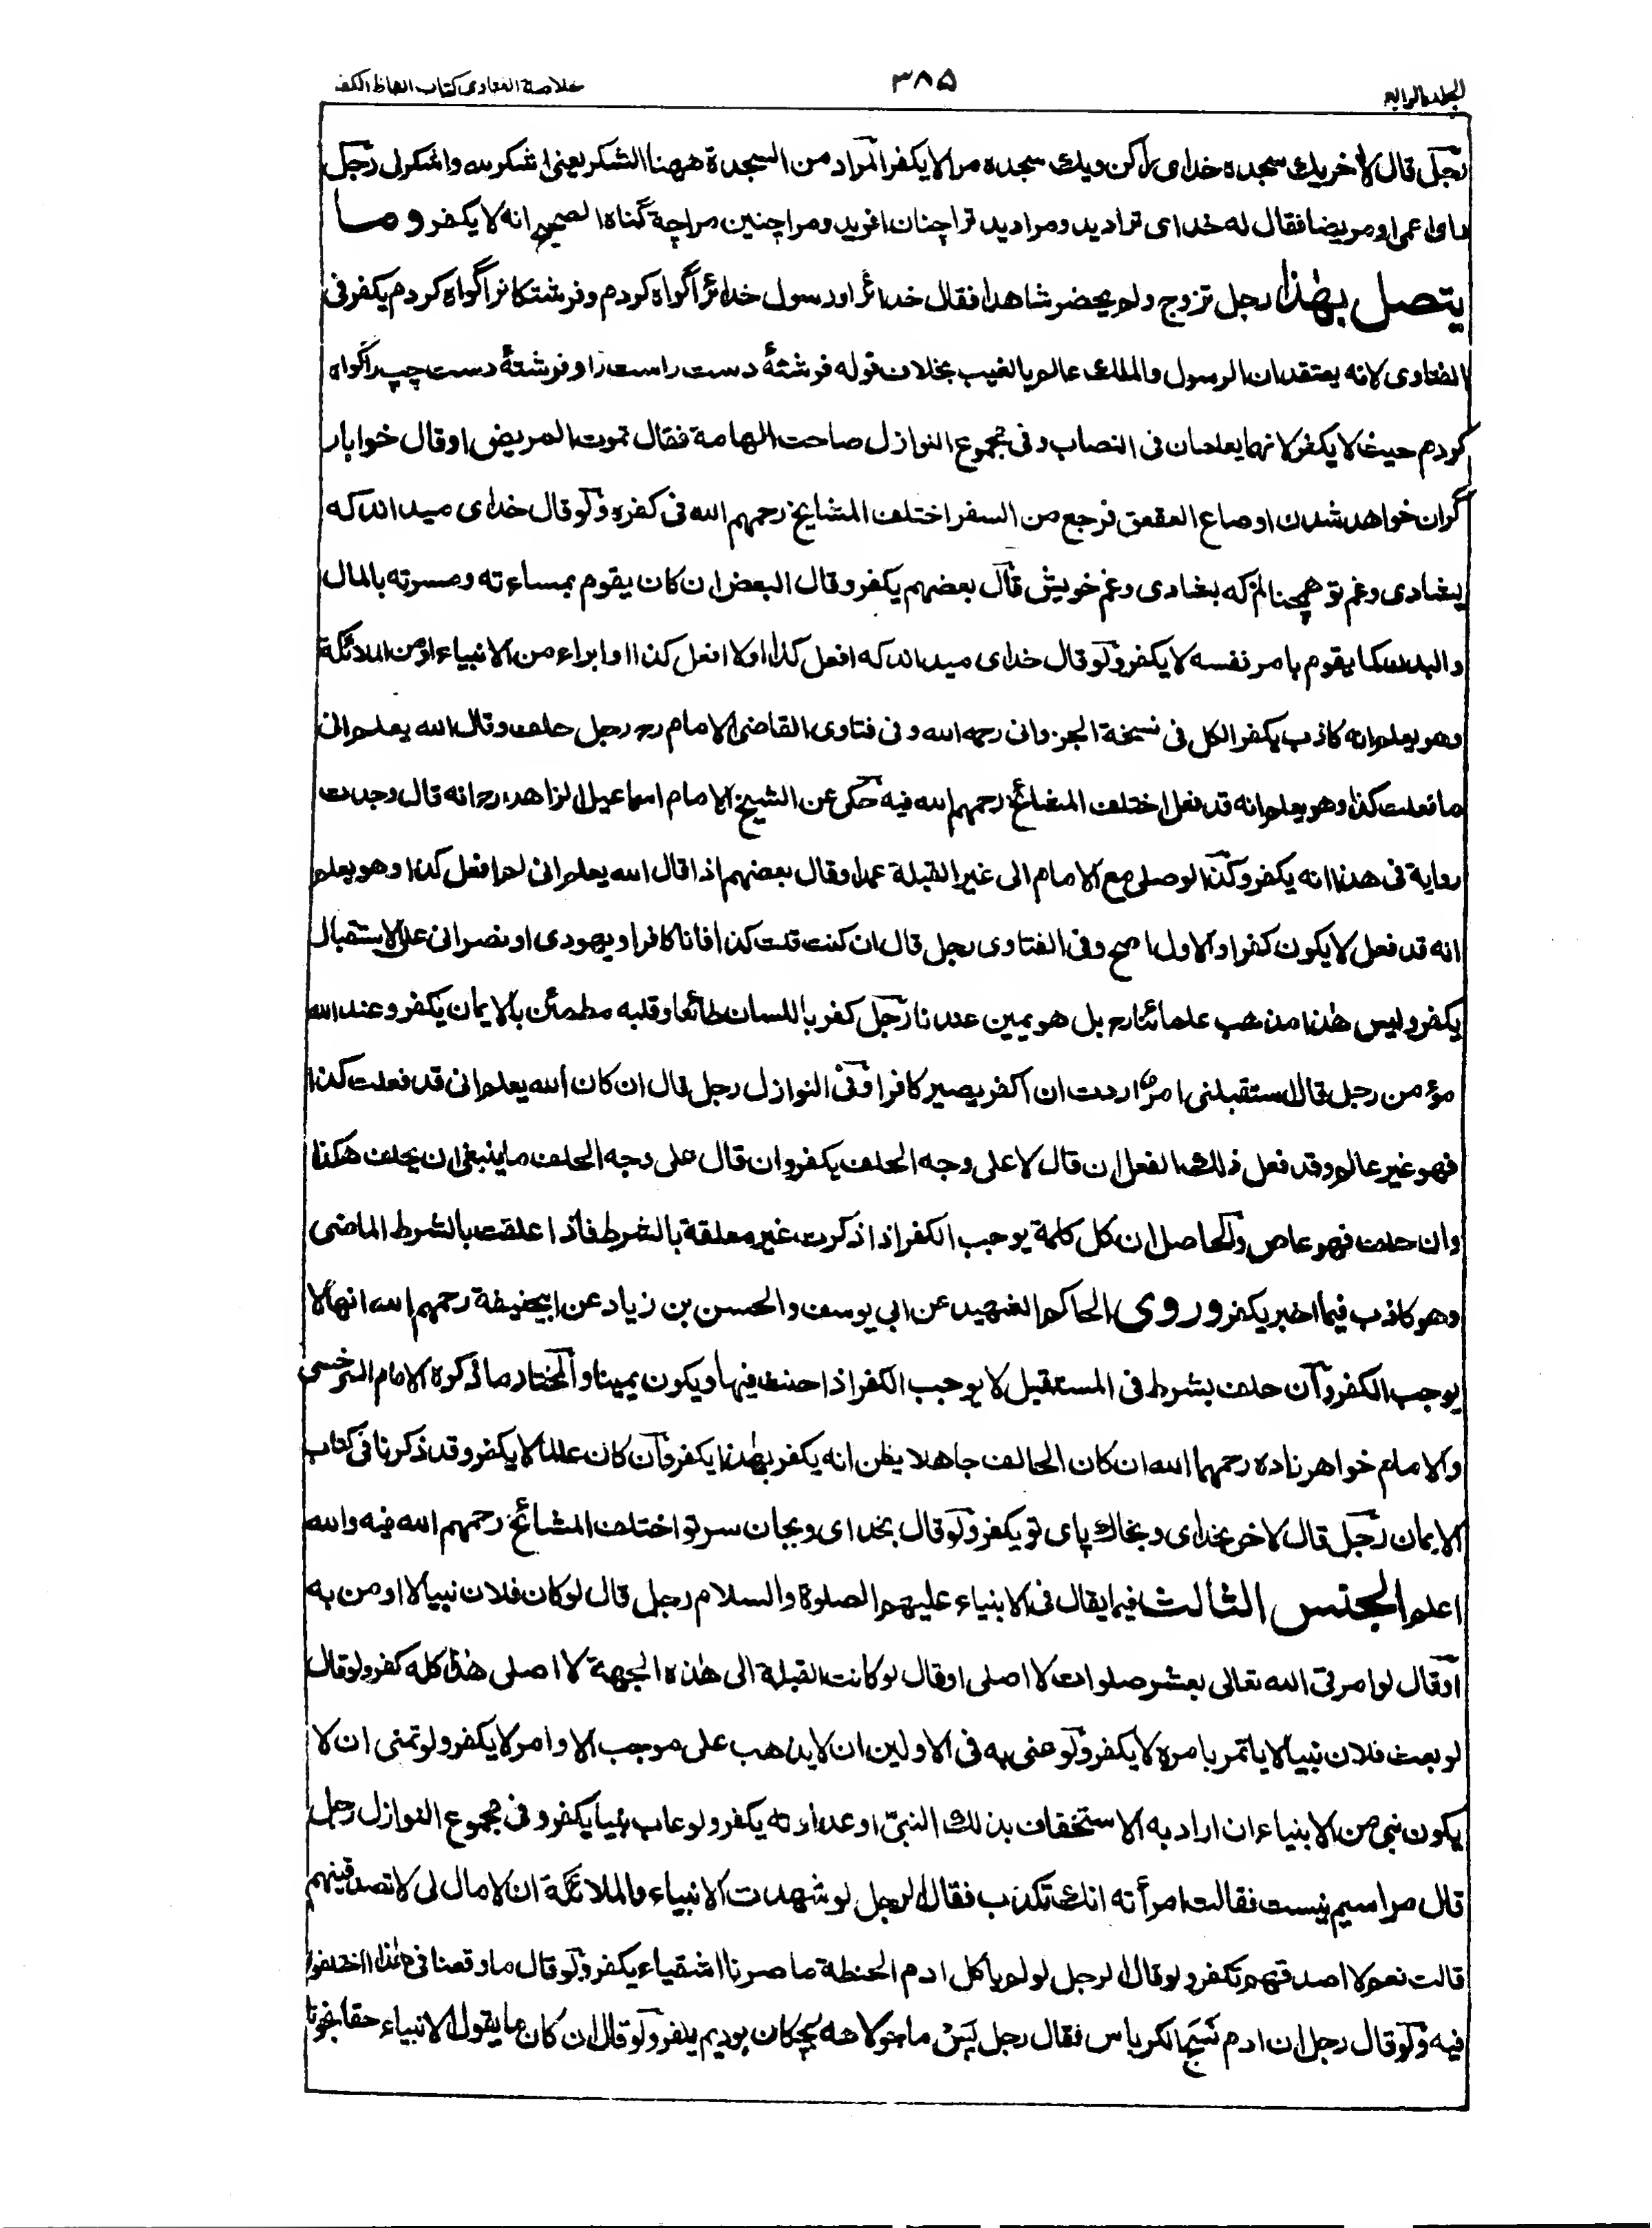 الجلد الرابع
٣٨٥
خلاصة الفتاوى كتاب الفاظ الكفر
رجل قال لاخر يك سجده خداى را كن ويك سجده مرا لا يكفر المراد من السجدة ههنا الشكر يعنى اشكر لله واشكر لى رجل
راى اعمى او مريضا فقال له خداى ترا ديد ومرا ديد ترا چنان افريد ومرا چنين مرا چه گناه الصحيح انه لا يكفر وما
يتصل بهذا رجل تزوج ولم يحضر شاهدا فقال خدائرا ورسول خدائرا گواه كردم وفرشتكانرا گواه كردم يكفر فى
الفتاوى لانه يعتقد ان الرسول والملك عالم بالغيب بخلاف قوله فرشتهٔ دست راست را وفرشتهٔ دست چپ را گواه
كردم حيث لا يكفر لانهما يعلمان فى النصاب وفى مجموع النوازل صاحت الهامة فقال تموت المريض او قال خوا بار
گران خواهد شدن او صاع العقعق فرجع من السفر اختلف المشايخ رحمهم الله فى كفره ولو قال خداى ميداند كه
بشادى وغم تو همچنانم كه بشادى وغم خويش قال بعضهم يكفر وقال البعض ان كان يقوم بمساءته ومسرته بالمال
والبدن كما يقوم بامر نفسه لا يكفر ولو قال خداى ميداند كه افعل كذا اولا افعل كذا او ابراء من الانبياء او من الملائكة
وهو يعلم انه كاذب يكفر الكل فى نسخة الجزوانى رحمه الله وفى فتاوى القاضى الامام رح رجل حلف وقال الله يعلم انى
ما فعلت كذا وهو يعلم انه قد فعل اختلف المشائخ رحمهم الله فيه حكى عن الشيخ الامام اسماعيل الزاهد رح انه قال وجدت
رواية فى هذا انه يكفر وكذا لو صلى مع الامام الى غير القبلة عمدا وقال بعضهم اذا قال الله يعلم انى لم افعل كذا وهو يعلم
انه قد فعل لا يكون كفرا والاول اصح وفى الفتاوى رجل قال ان كنت قلت كذا فانا كافر او يهودى او نصرانى على الاستقبال
يكفر وليس هذا مذهب علمائنا رح بل هو يمين عندنا رجل كفر باللسان طائعا وقلبه مطمئن بالايمان يكفر وعند الله
مؤمن رجل قال استقبلنى امر اردت ان اكفر يصير كافرا وفى النوازل رجل قال ان كان الله يعلم انى قد فعلت كذا
فهو غير عالم وقد فعل ذلك الفعل ان قال لا على وجه الحلف يكفر وان قال على وجه الحلف ما ينبغى ان يحلف هكذا
وان حلف فهو عاص والحاصل ان كل كلمة يوجب الكفر اذا ذكرت غير معلقة بالشرط فاذا علقت بالشرط الماضى
وهو كاذب فيما اخبر يكفر وروى الحاكم الشهيد عن ابى يوسف والحسن بن زياد عن ابيحنيفة رحمهم الله انها لا
يوجب الكفر وان حلف بشرط فى المستقبل لا يوجب الكفر اذا حنث فيها ويكون يمينا والمختار ما ذكره الامام السرخسى
والامام خواهر زاده رحمهما الله ان كان الحالف جاهلا يظن انه يكفر بهذا يكفر فان كان عالما لا يكفر وقد ذكرنا فى كتاب
الايمان رجل قال لاخر بخداى وبخاك پاى تو يكفر ولو قال بخداى وبجان سر تو اختلف المشائخ رحمهم الله فيه والله
اعلم الجنس الثالث فيما يقال فى الانبياء عليهم الصلوة والسلام رجل قال لو كان فلان نبيا لا اومن به
او قال لو امرنى الله تعالى بعشر صلوات لا اصلى او قال لو كانت القبلة الى هذه الجهة لا اصلى هذا كله كفر ولو قال
لو بعث فلان نبيا لا ياتمر بامره لا يكفر ولو عنى به فى الاولين ان لا يذهب على موجب الاوامر لا يكفر ولو تمنى ان لا
يكون نبى من الانبياء ان اراد به الاستخفاف بذلك النبىّ او عداوته يكفر ولو عاب نبيا يكفر وفى مجموع النوازل رجل
قال مرا سيم نيست فقالت امرأته انك تكذب فقال الرجل لو شهدت الانبياء والملائكة ان لا مال لى لا تصدقينهم
قالت نعم لا اصدقهم تكفر ولو قال الرجل لو لم يأكل ادم الحنطة ما صرنا اشقياء يكفر ولو قال ما وقعنا فى هذا اختلفوا
فيه ولو قال رجل ان ادم نسج الكرباس فقال رجل پس ما جولاهه بچكان بوديم يكفر ولو قال ان كان ما يقول الانبياء حقا نجونا